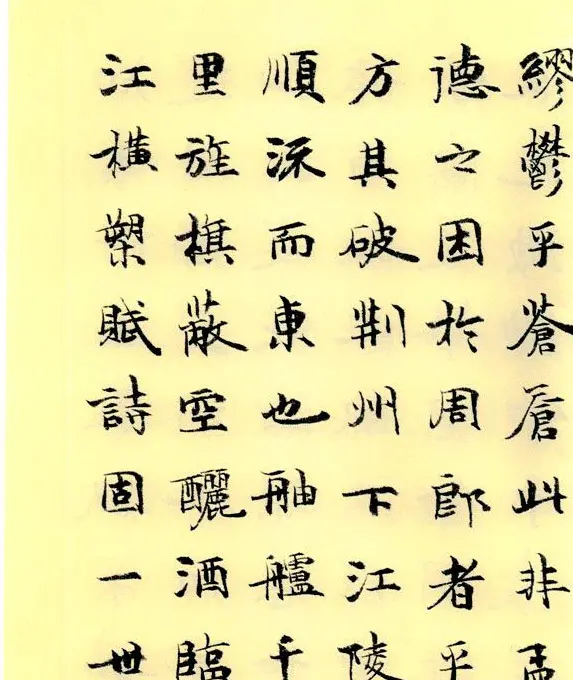 繆鬱乎蒼蒼此非孟
德之困於周郎者乎
方其破荆州下江陵
順流而東也舳艫千
里旌旗蔽空釃酒臨
江橫槊賦詩固一世